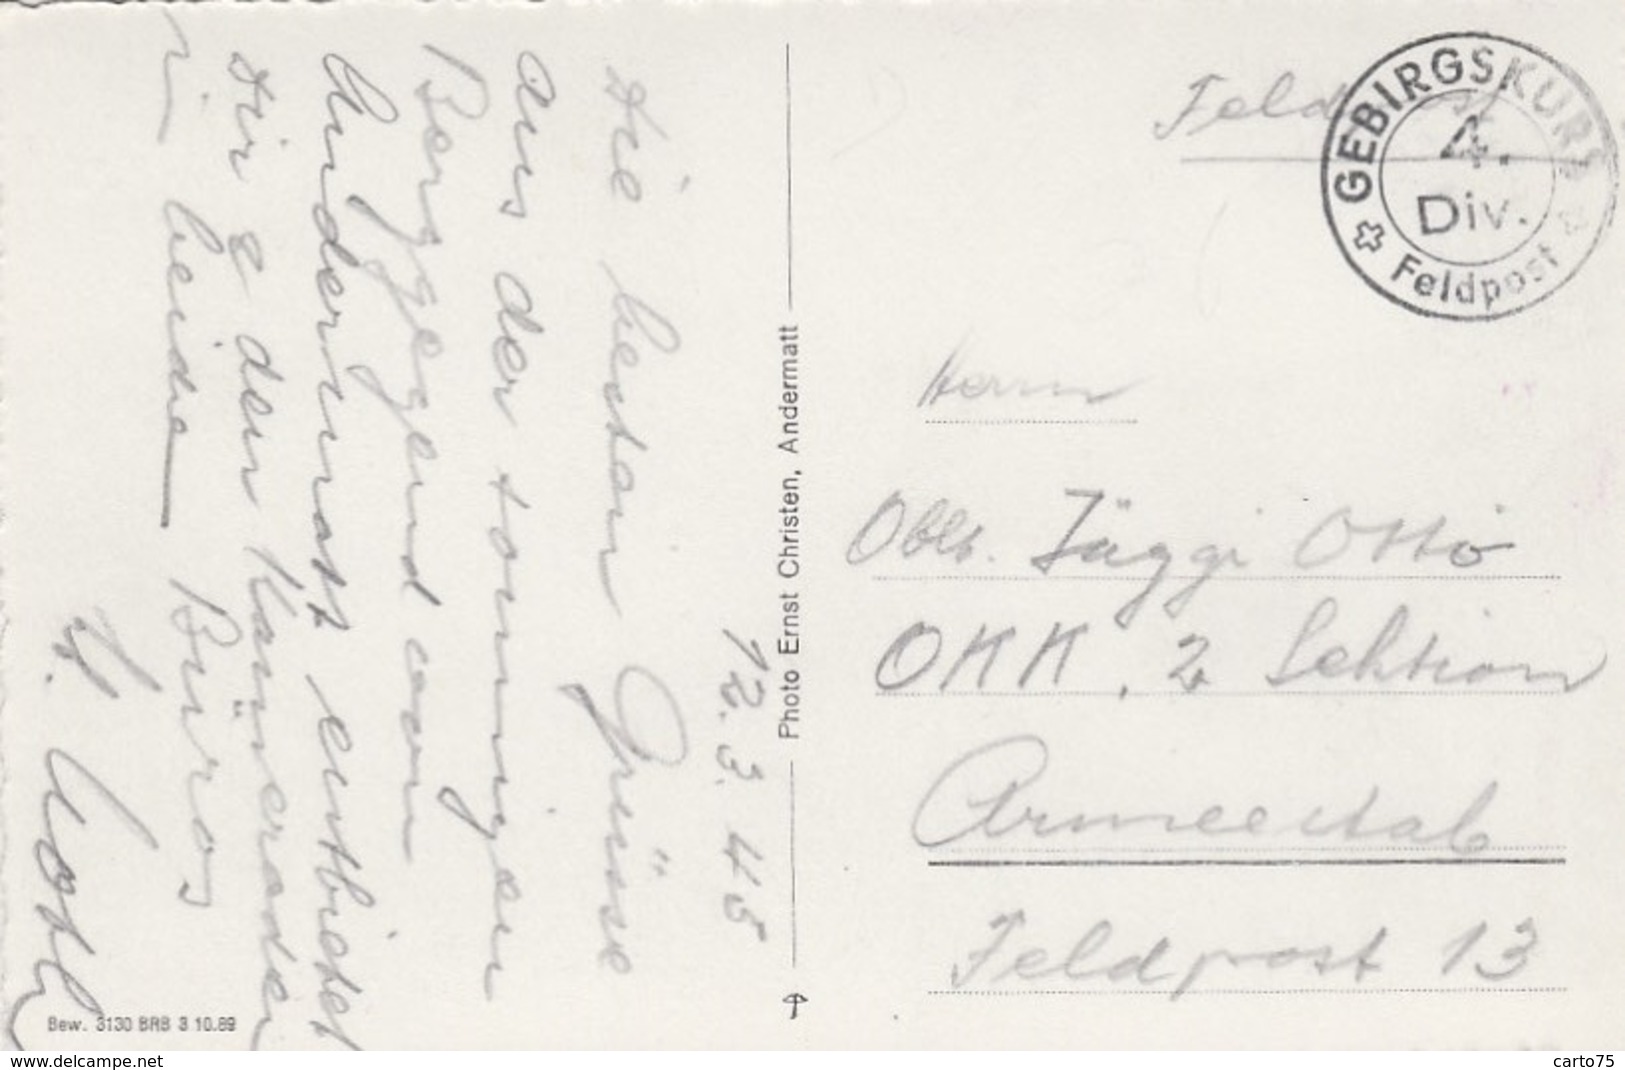 12.3.45
Die besten Grüsse
aus der sonnigen
Berggegend von
Andermatt entbietet
Dir & den Kameraden
in beide Büros
Photo Ernst Christen, Andermatt
Bew. 3130 BRB 3.10.89
Feldpost
GEBIRGSKURS
4.
Div.
Feldpost
Herrn
Oblt. Jäggi Otto
OKK, 2. Sektion
Armeestab
Feldpost 13
www.delcampe.net
carto75